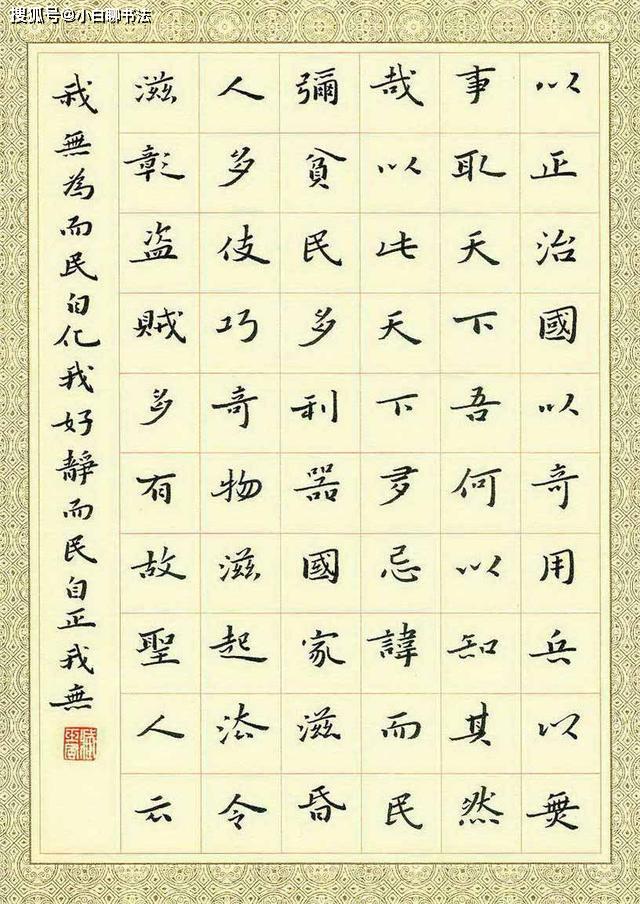 搜狐号@小白聊书法
以正治國以奇用兵以無
事取天下吾何以知其然
哉以此天下多忌諱而民
彌貧民多利器國家滋昏
人多伎巧奇物滋起法令
滋彰盗賊多有故聖人云
我無為而民自化我好靜而民自正我無